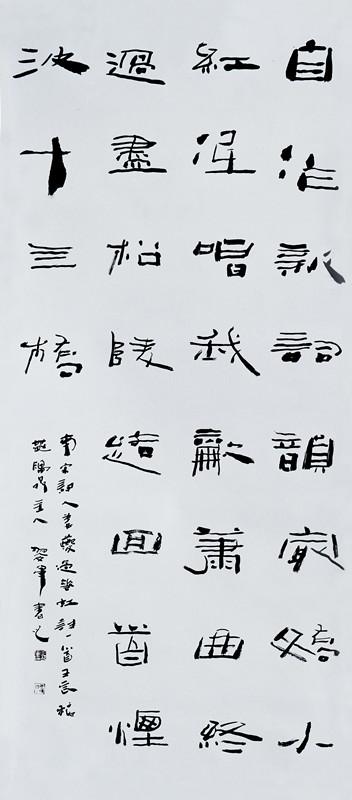 自作新詞韻最嬌小
紅低唱我龡簫曲終
過盡松陵路回首煙
波十亖橋
南宋詞人姜夔過垂虹詩一首
主人 書